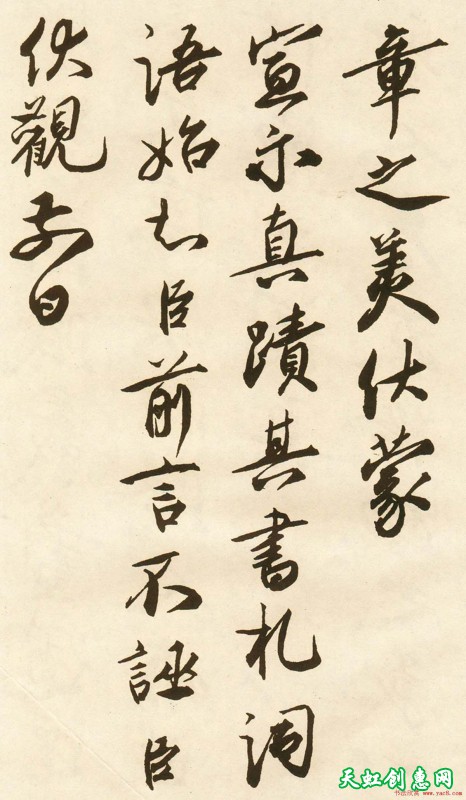 章之美伏蒙
宣示真蹟其書札詞
語始知臣前言不誣臣
伏觀日
天虹创惠网
书法欣赏 www.yac8.com